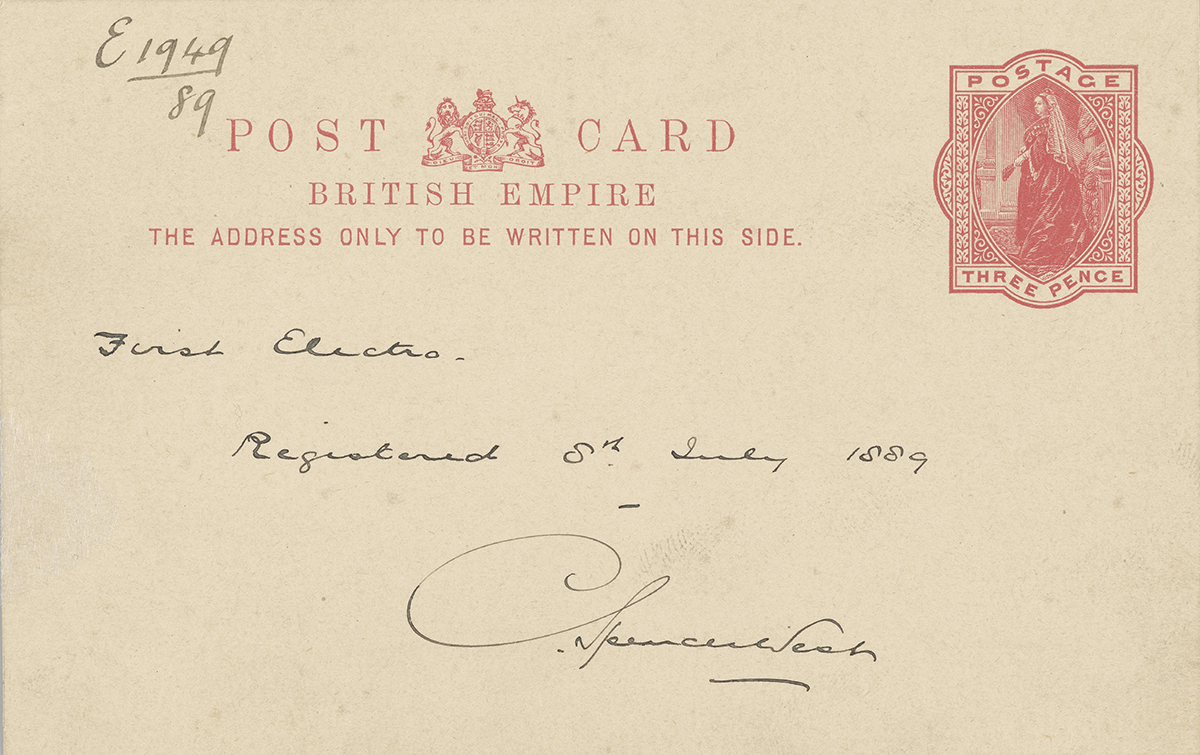 E 1949
89
POST CARD
BRITISH EMPIRE
THE ADDRESS ONLY TO BE WRITTEN ON THIS SIDE.
POSTAGE
THREE PENCE
First Electro.
Registered 8th July 1889
C. Spencer West